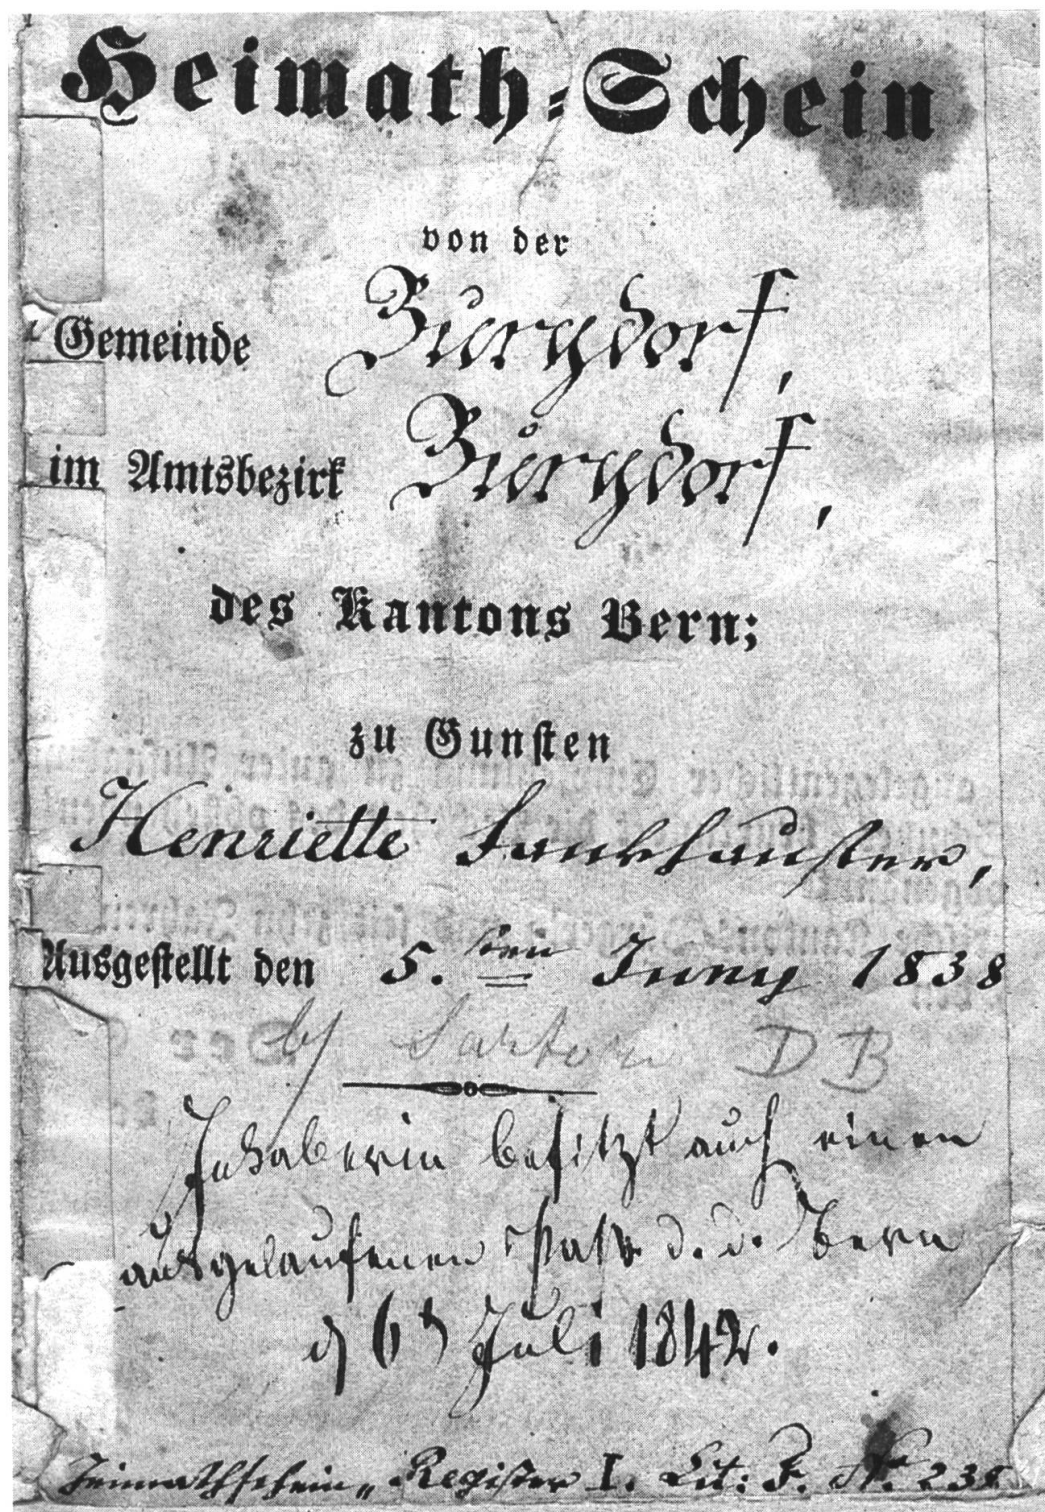 Heimath-Schein
von der
Gemeinde Burgdorf,
im Amtsbezirk Burgdorf,
des Kantons Bern;
zu Gunsten
Henriette Fankhauser,
Ausgestellt den 5.ten Juny 1838
by Sartori DB
Inhaberin besitzt auch einen
ausgelaufenen Paß d. d. Bern
d 6t Juli 1842.
Heimathschein-Register I. Lit: F. N.